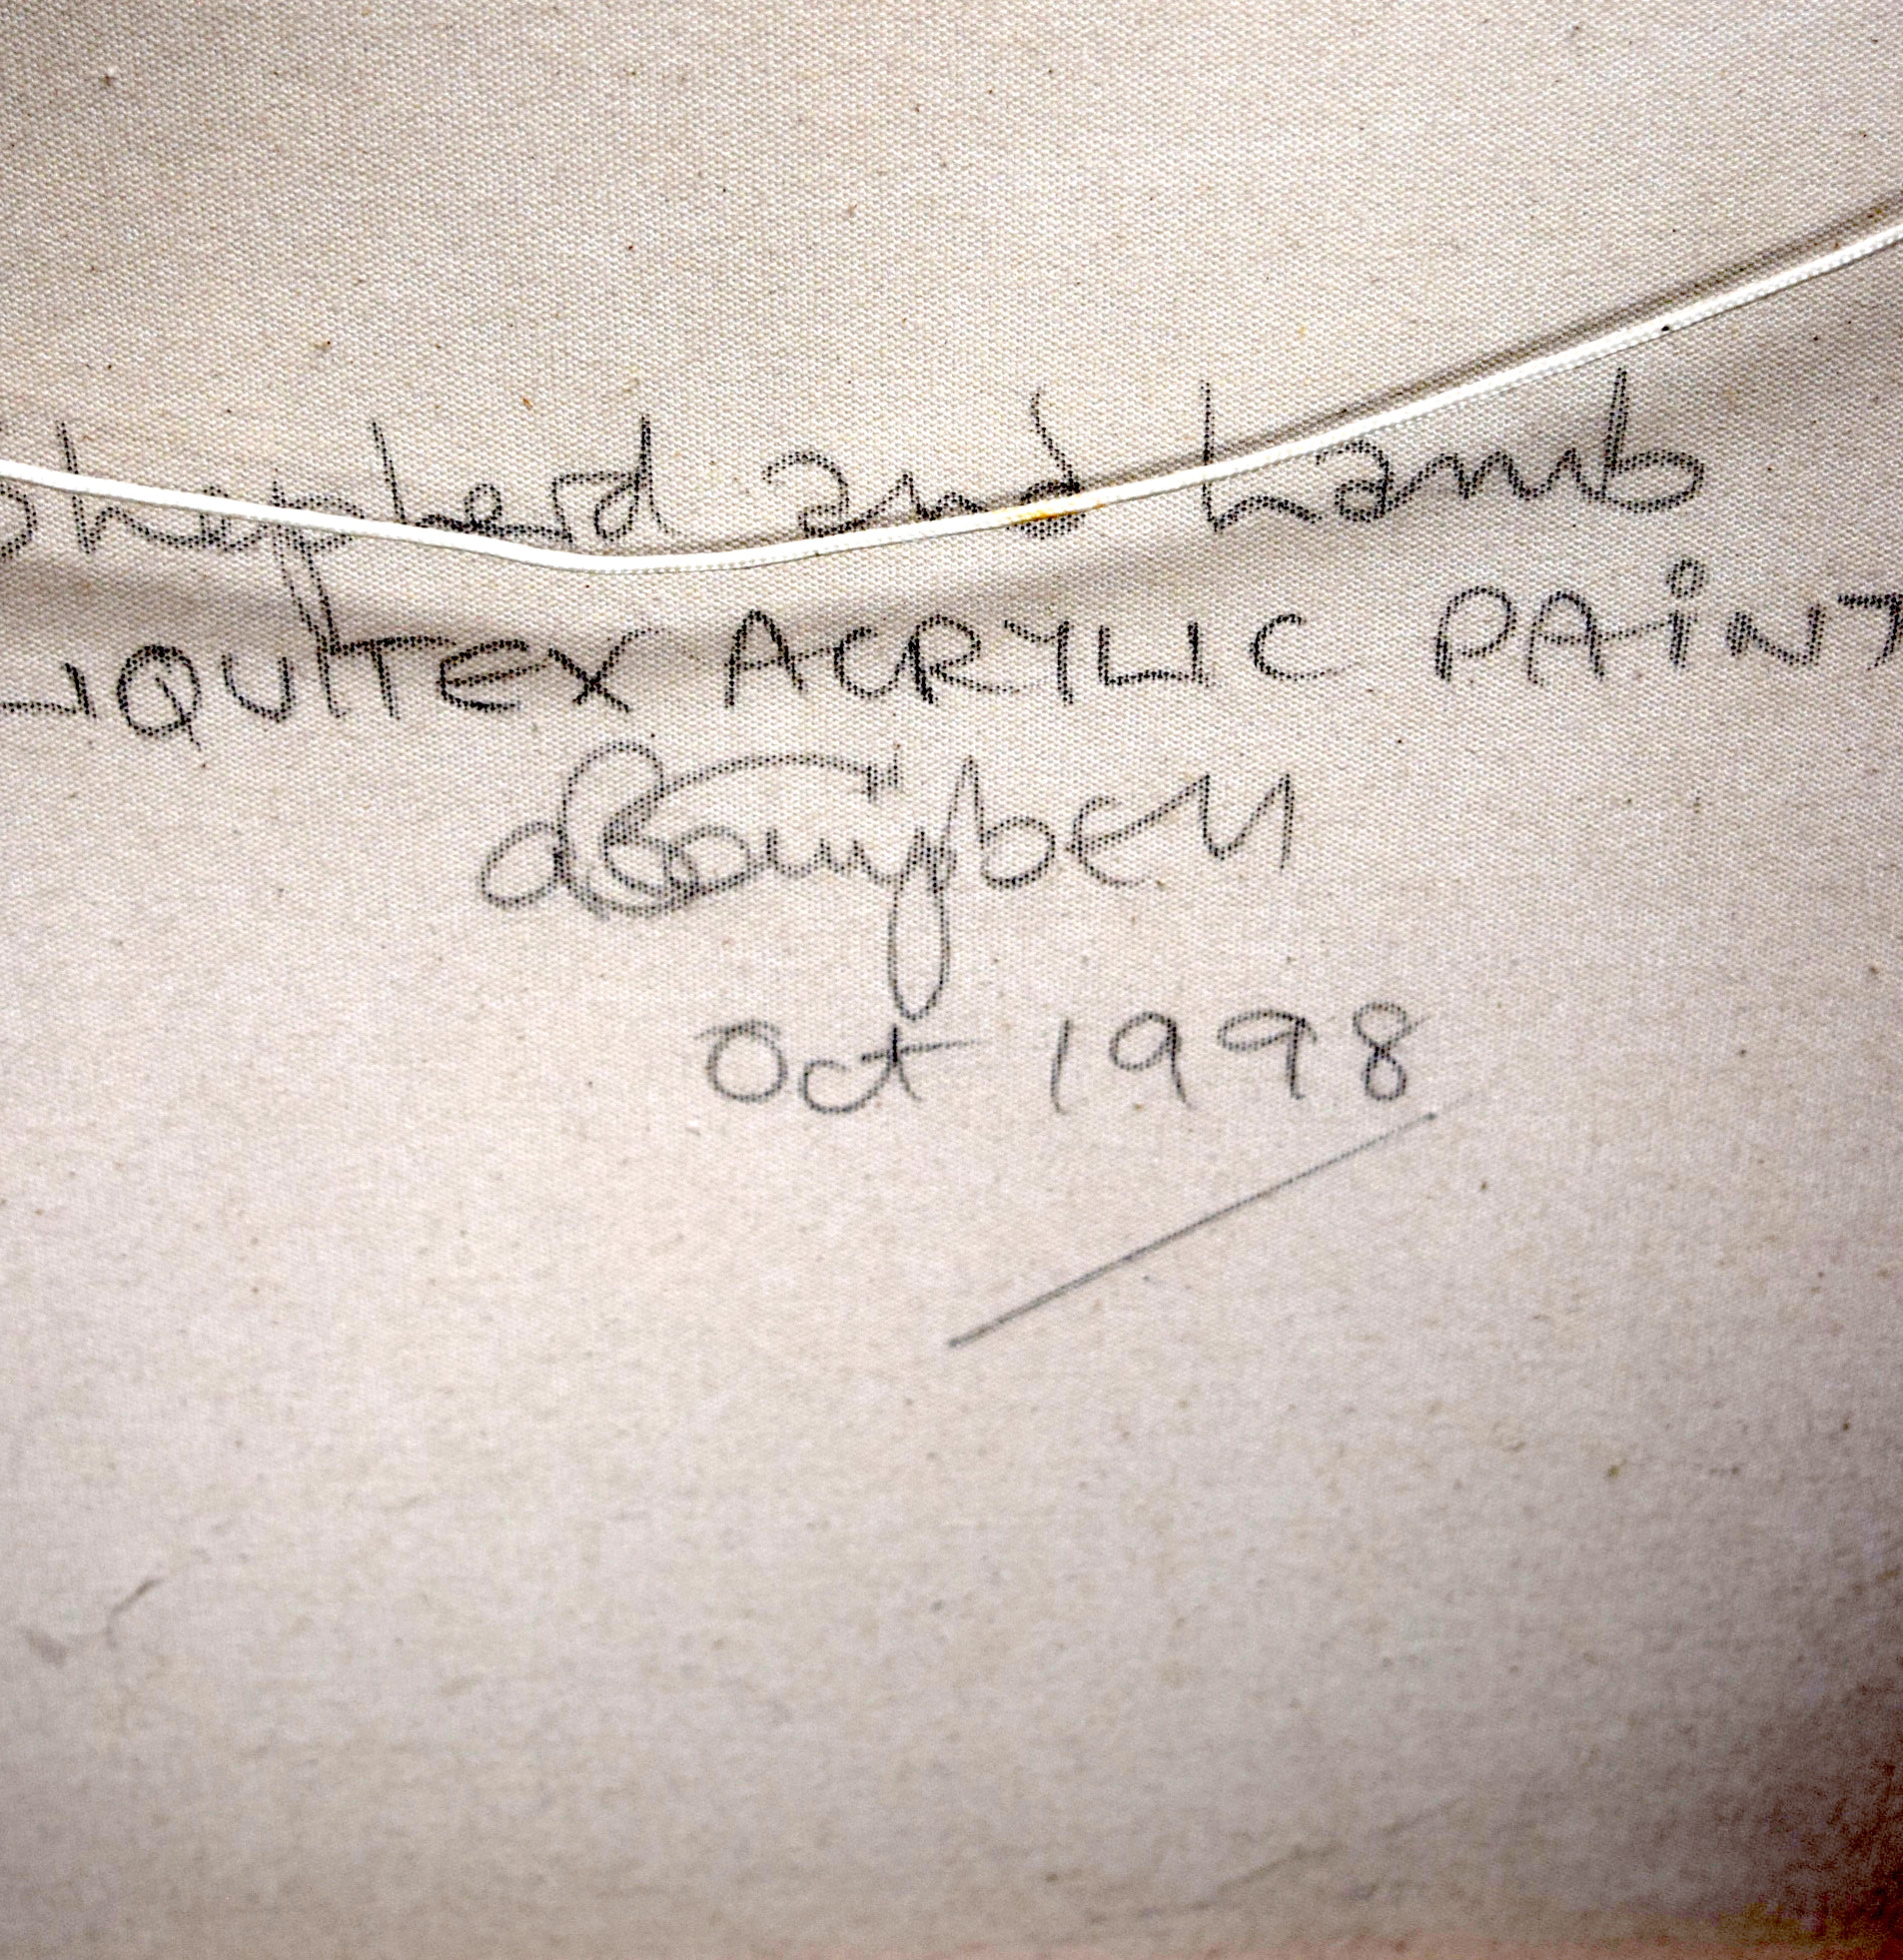 Shepherd and Lamb
LIQUITEX ACRYLIC PAiNT
Campbell
Oct 1998